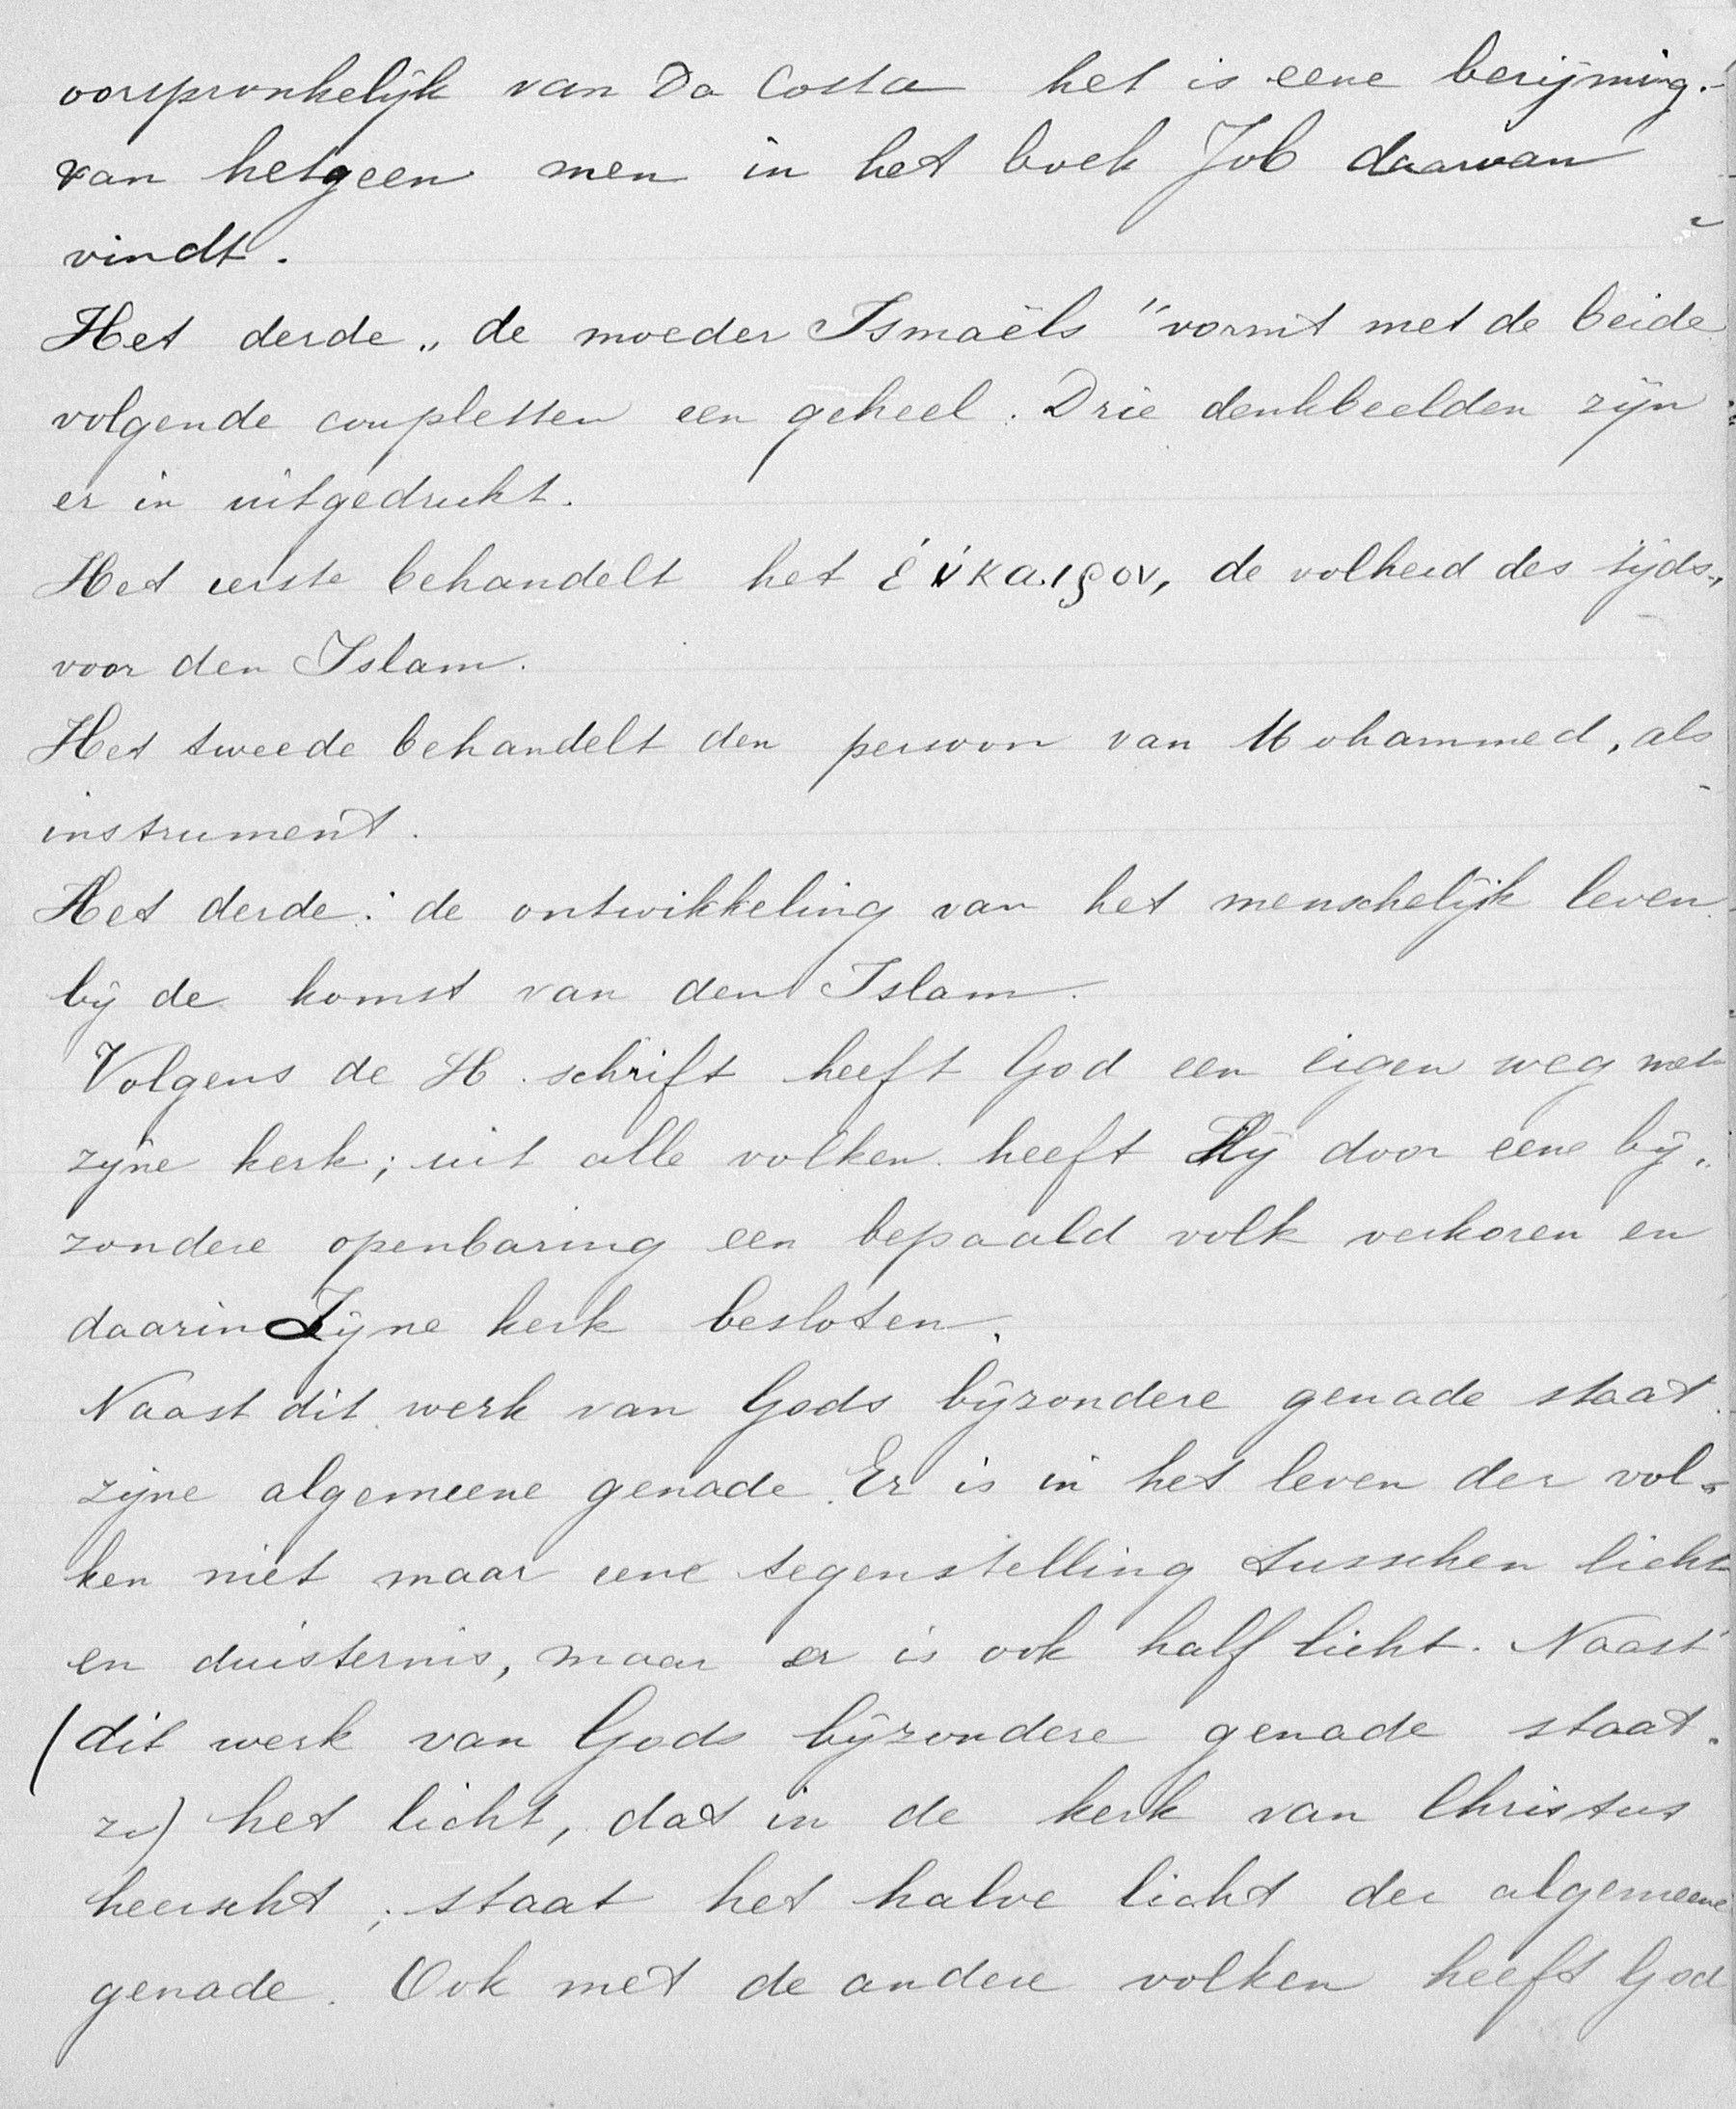 oorspronkelijk van Da Costa het is eene berijming.
van hetgeen men in het boek Job daarvan
vindt.
Het derde „de moeder Ismaëls" vormt met de beide
volgende coupletten een geheel. Drie denkbeelden zijn
er in uitgedrukt.
Het eerste behandelt het ἐύκαιρον, de volheid des tijds,
voor den Islam.
Het tweede behandelt den persoon van Mohammed, als
instrument.
Het derde: de ontwikkeling van het menschelijk leven
bij de komst van den Islam.
Volgens de H. schrift heeft God een eigen weg met
zijne kerk; uit alle volken heeft Hij door eene bij„
zondere openbaring een bepaald volk verkoren en
daarin Zijne kerk besloten.
Naast dit werk van Gods bijzondere genade staat
zijne algemeene genade. Er is in het leven der vol„
ken niet maar eene tegenstelling tusschen licht
en duisternis, maar er is ook half licht. Naast
(dit werk van Gods bijzondere genade staat.
zij) het licht, dat in de kerk van Christus
heerscht, staat het halve licht der algemeene
genade. Ook met de andere volken heeft God